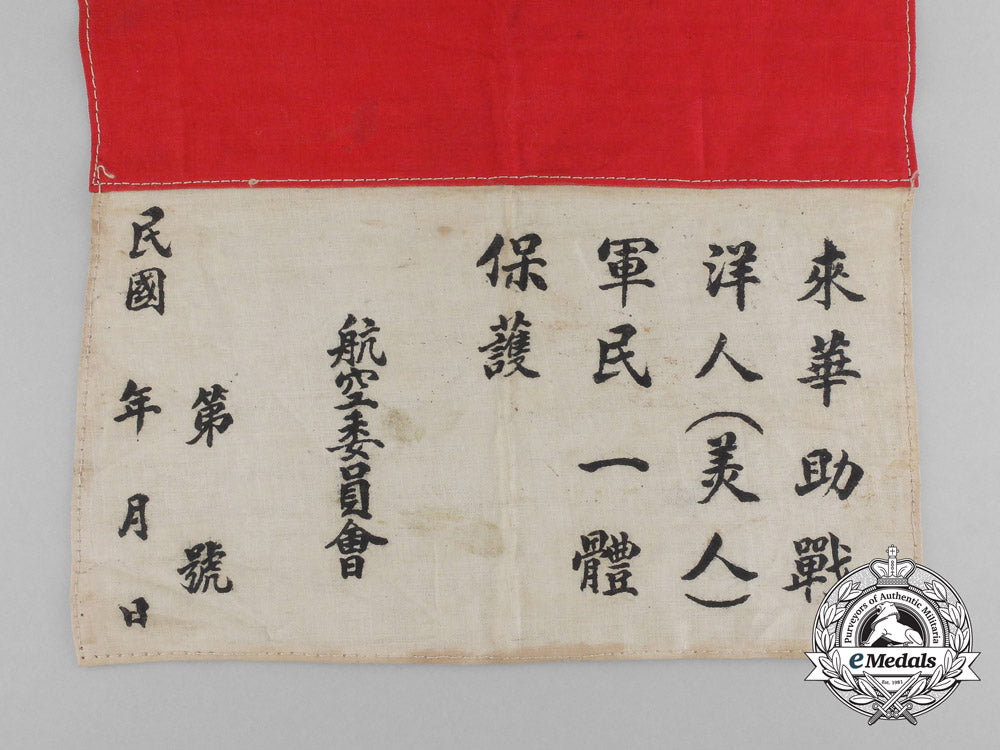 來華助戰
洋人(美人)
軍民一體
保護
航空委員會
第 號
民國 年 月 日
Purveyors of Authentic Militaria
eMedals
Est. 1981